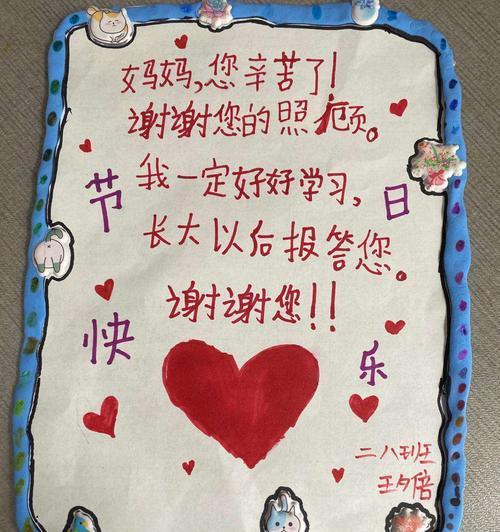 妈妈,您辛苦了!
谢谢您的照顾。
我一定好好学习,
长大以后报答您。
谢谢您!!
节日
快乐
二八班王
王夕倍